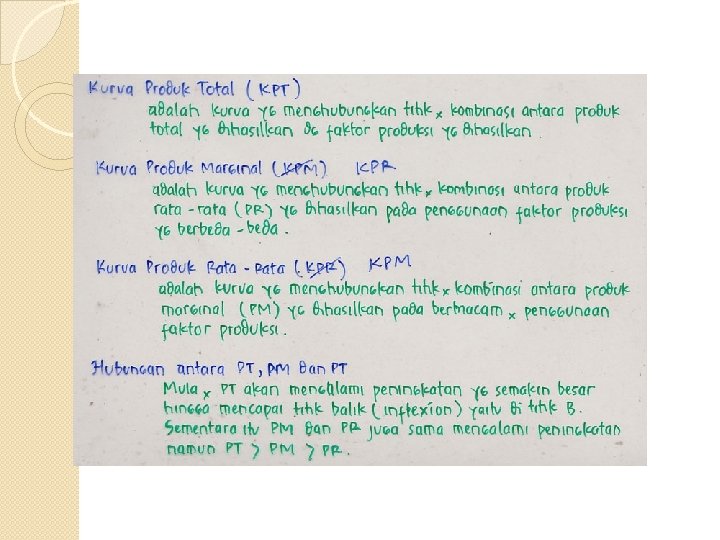 Kurva Produk Total (KPT)
adalah kurva yg menghubungkan titik x kombinasi antara produk
total yg dihasilkan dg faktor produksi yg dihasilkan.
Kurva Produk Marginal (KPM) KPR
adalah kurva yg menghubungkan titik x kombinasi antara produk
rata-rata (PR) yg dihasilkan pada penggunaan faktor produksi
yg berbeda-beda.
Kurva Produk Rata-Rata (KPR) KPM
adalah kurva yg menghubungkan titik x kombinasi antara produk
marginal (PM) yg dihasilkan pada bermacam x penggunaan
faktor produksi.
Hubungan antara PT, PM dan PT
Mula x PT akan mengalami peningkatan yg semakin besar
hingga mencapai titik balik (inflexion) yaitu di titik B.
Sementara itu PM dan PR juga sama mengalami peningkatan
namun PT > PM > PR.